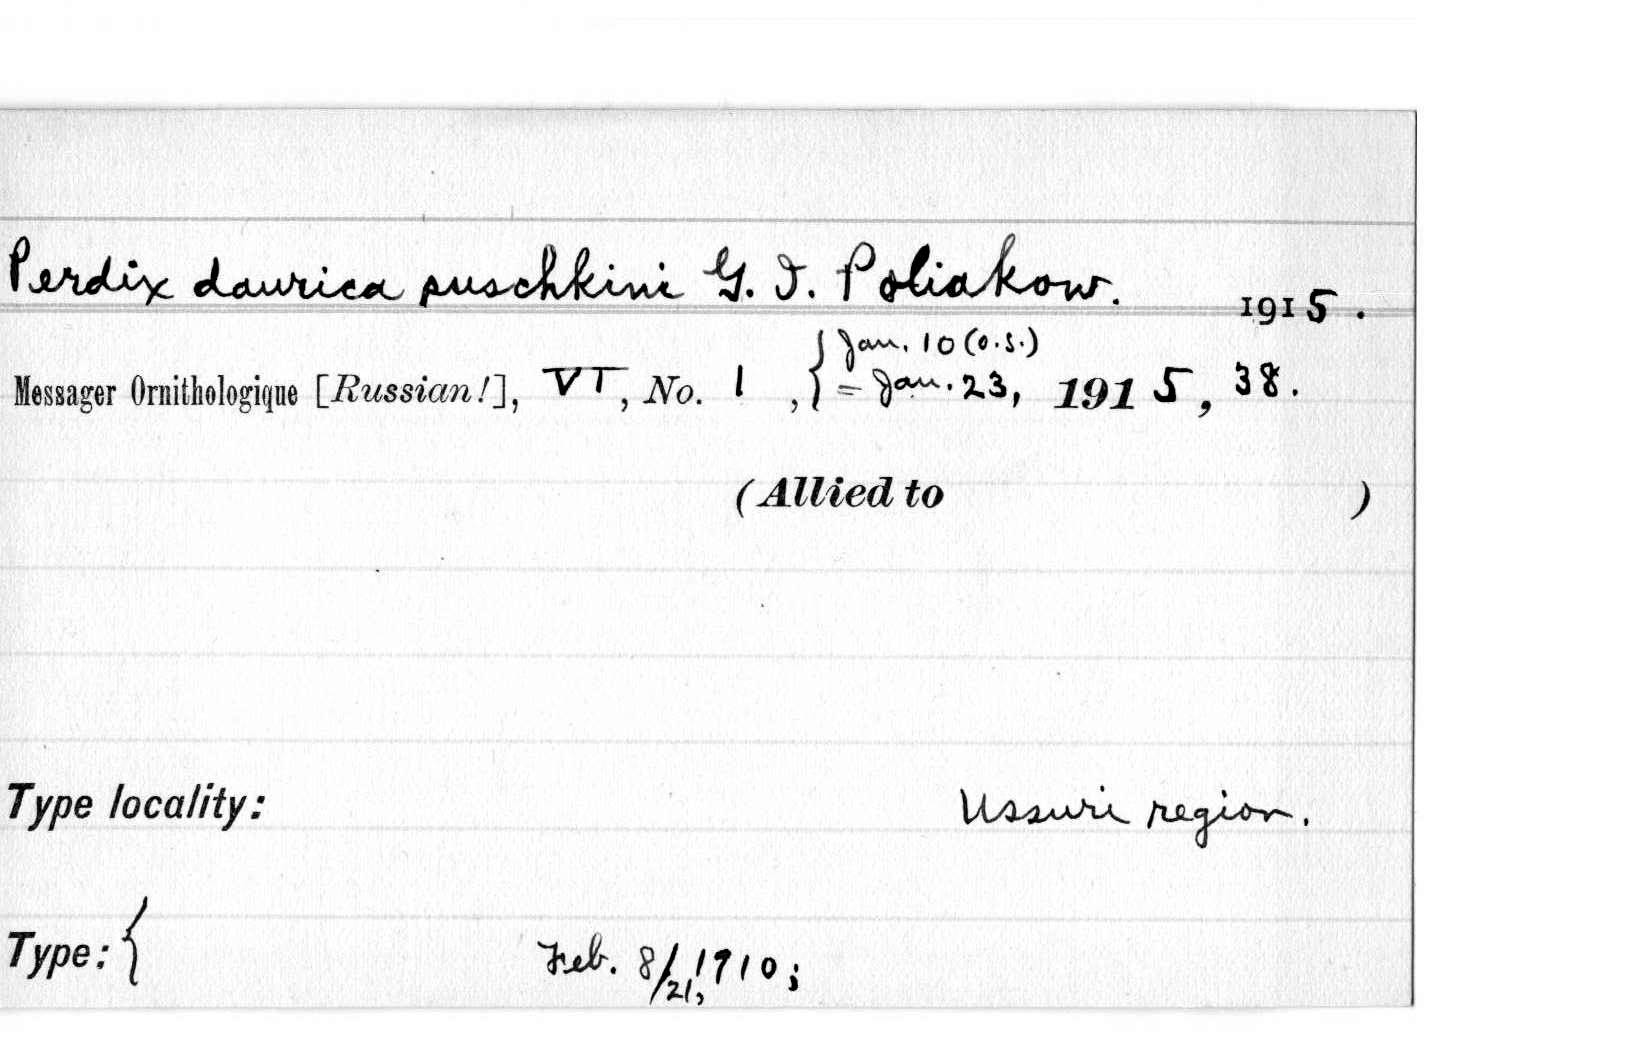 Perdix daurica suschkini G. I. Poliakow. 1915.
Messager Ornithologique [Russian!], VI, No. 1, { Jan. 10 (o.s.)
= Jan. 23, 1915, 38.
(Allied to )
Type locality: Ussuri region.
Type: { Feb. 8/21, 1910;